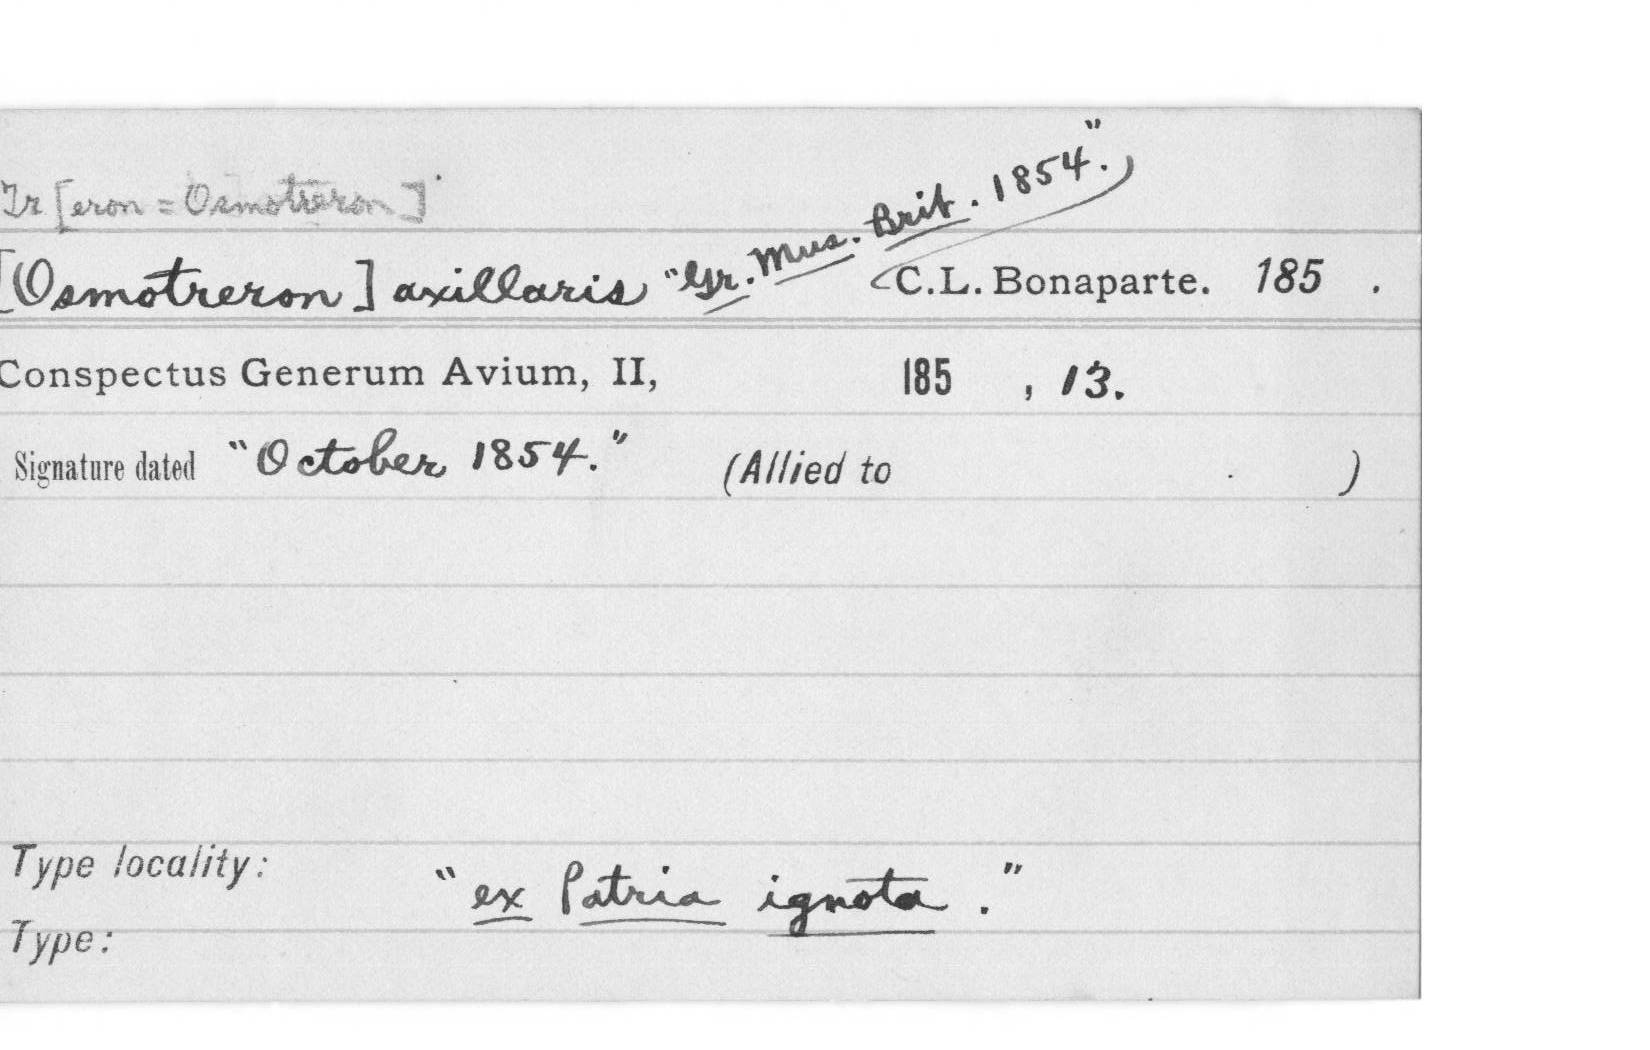 Tr [eron = Osmotreron]
[Osmotreron] axillaris "Gr. Mus. Brit. 1854." C.L. Bonaparte. 185 .
Conspectus Generum Avium, II, 185 , 13.
Signature dated "October 1854." (Allied to . )
Type locality: "ex Patria ignota."
Type: